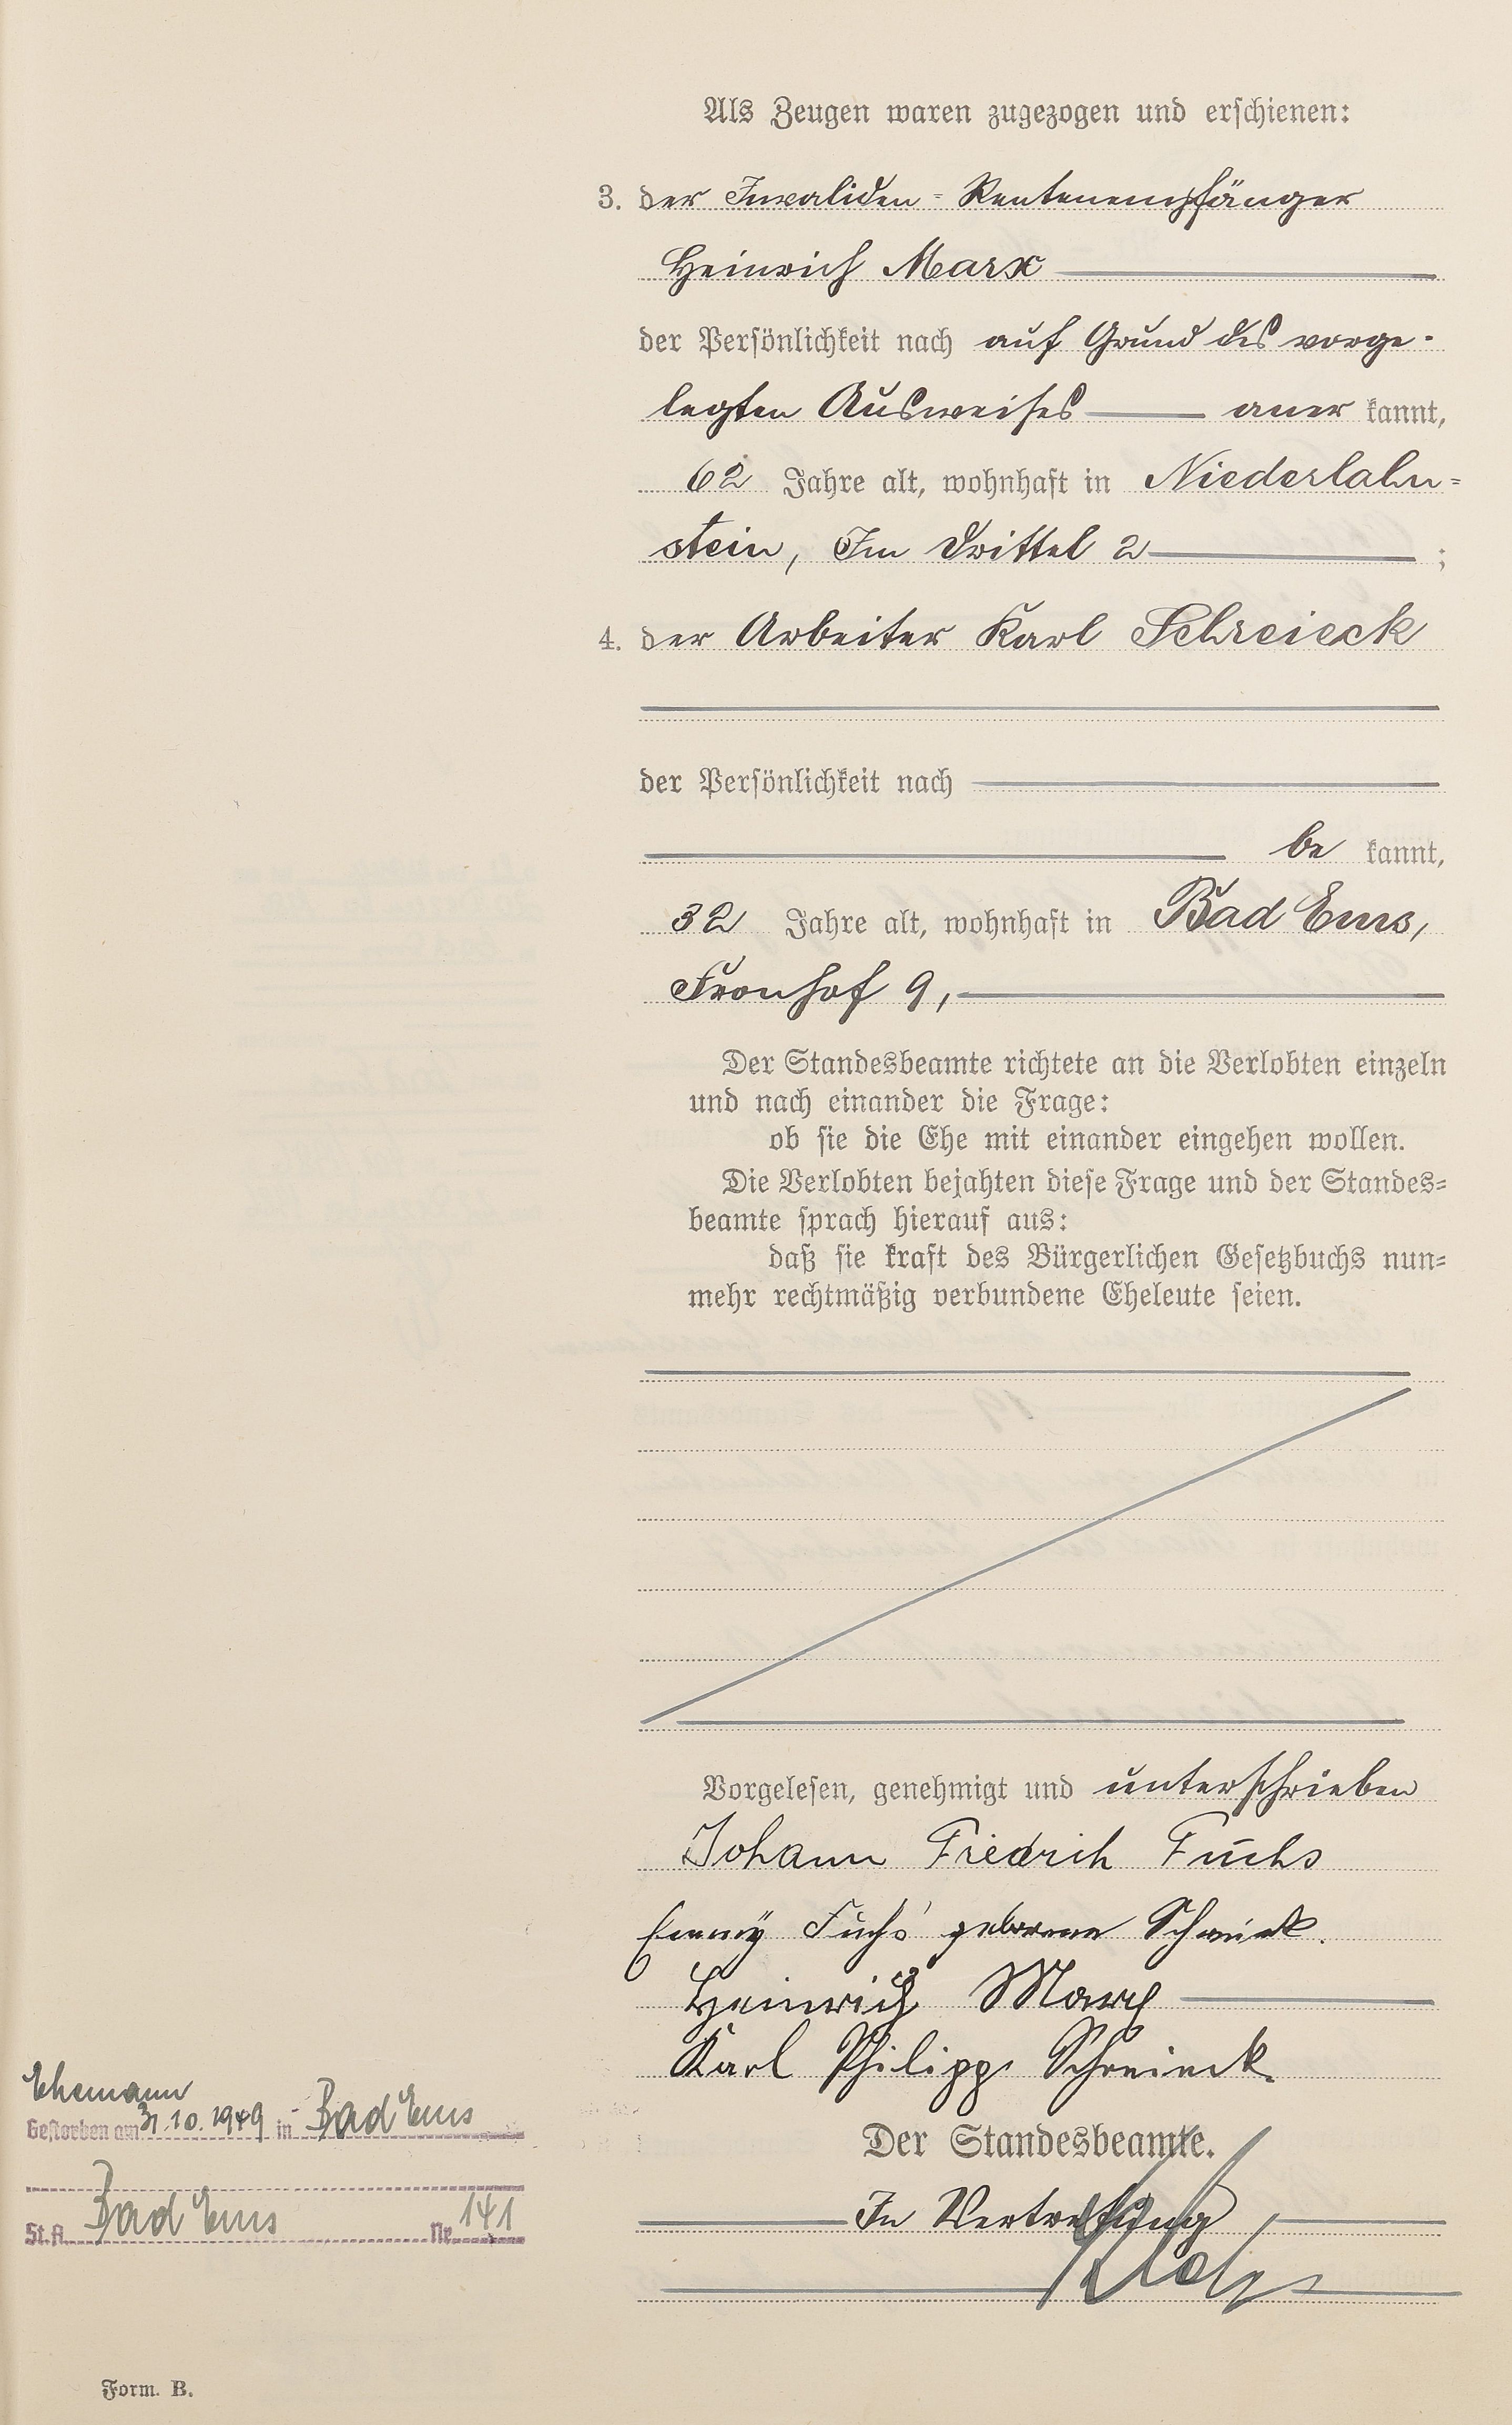 Als Zeugen waren zugezogen und erschienen:
3. der Invaliden-Rentenempfänger
Heinrich Marx
der Persönlichkeit nach auf Grund des vorge-
legten Ausweises aner kannt,
62 Jahre alt, wohnhaft in Niederlahn=
stein, Im Drittel 2 ;
4. der Arbeiter Karl Schreieck
der Persönlichkeit nach
be kannt,
32 Jahre alt, wohnhaft in Bad Ems,
Fronhof 9,
Der Standesbeamte richtete an die Verlobten einzeln
und nach einander die Frage:
ob sie die Ehe mit einander eingehen wollen.
Die Verlobten bejahten diese Frage und der Standes=
beamte sprach hierauf aus:
daß sie kraft des Bürgerlichen Gesetzbuchs nun=
mehr rechtmäßig verbundene Eheleute seien.
Vorgelesen, genehmigt und unterschrieben
Johann Friedrich Fuchs
Emmy Fuchs geborene Schreieck.
Heinrich Marx
Karl Philipp Schreieck.
Der Standesbeamte.
In Vertretung
Ehemann
Gestorben am 31.10.1949 in Bad Ems
St.A. Bad Ems Nr. 141
Form. B.